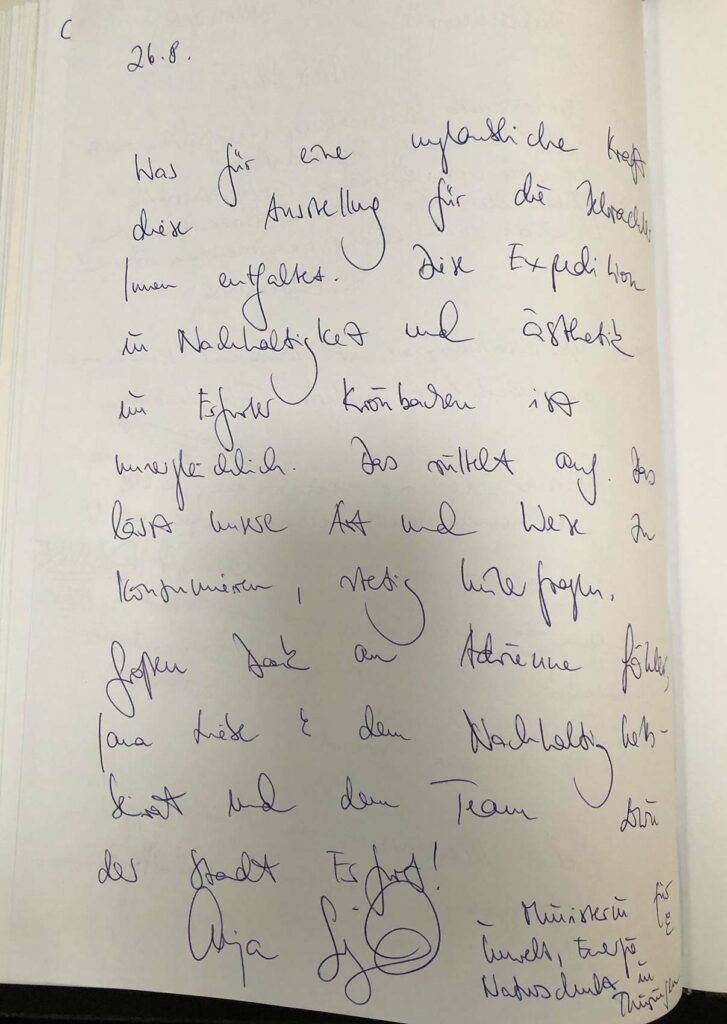 C
26.8.
Was für eine unglaubliche Kraft
diese Ausstellung für die
Innen entfaltet. Diese Expedition
in Nachhaltigkeit und Ästhetik
im Erfurter Krönbacken ist
unvergleichlich. Das rüttelt auf. Das
lässt unsere Art und Weise zu
konsumieren, stetig hinterfragen.
Großen Dank an Adrienne Göhler,
Jana Liebe & dem Nachhaltigkeits-
beirat und dem Team
der Stadt Erfurt!
Anja
- Ministerin für
Umwelt, Energie &
Naturschutz in
Thüringen